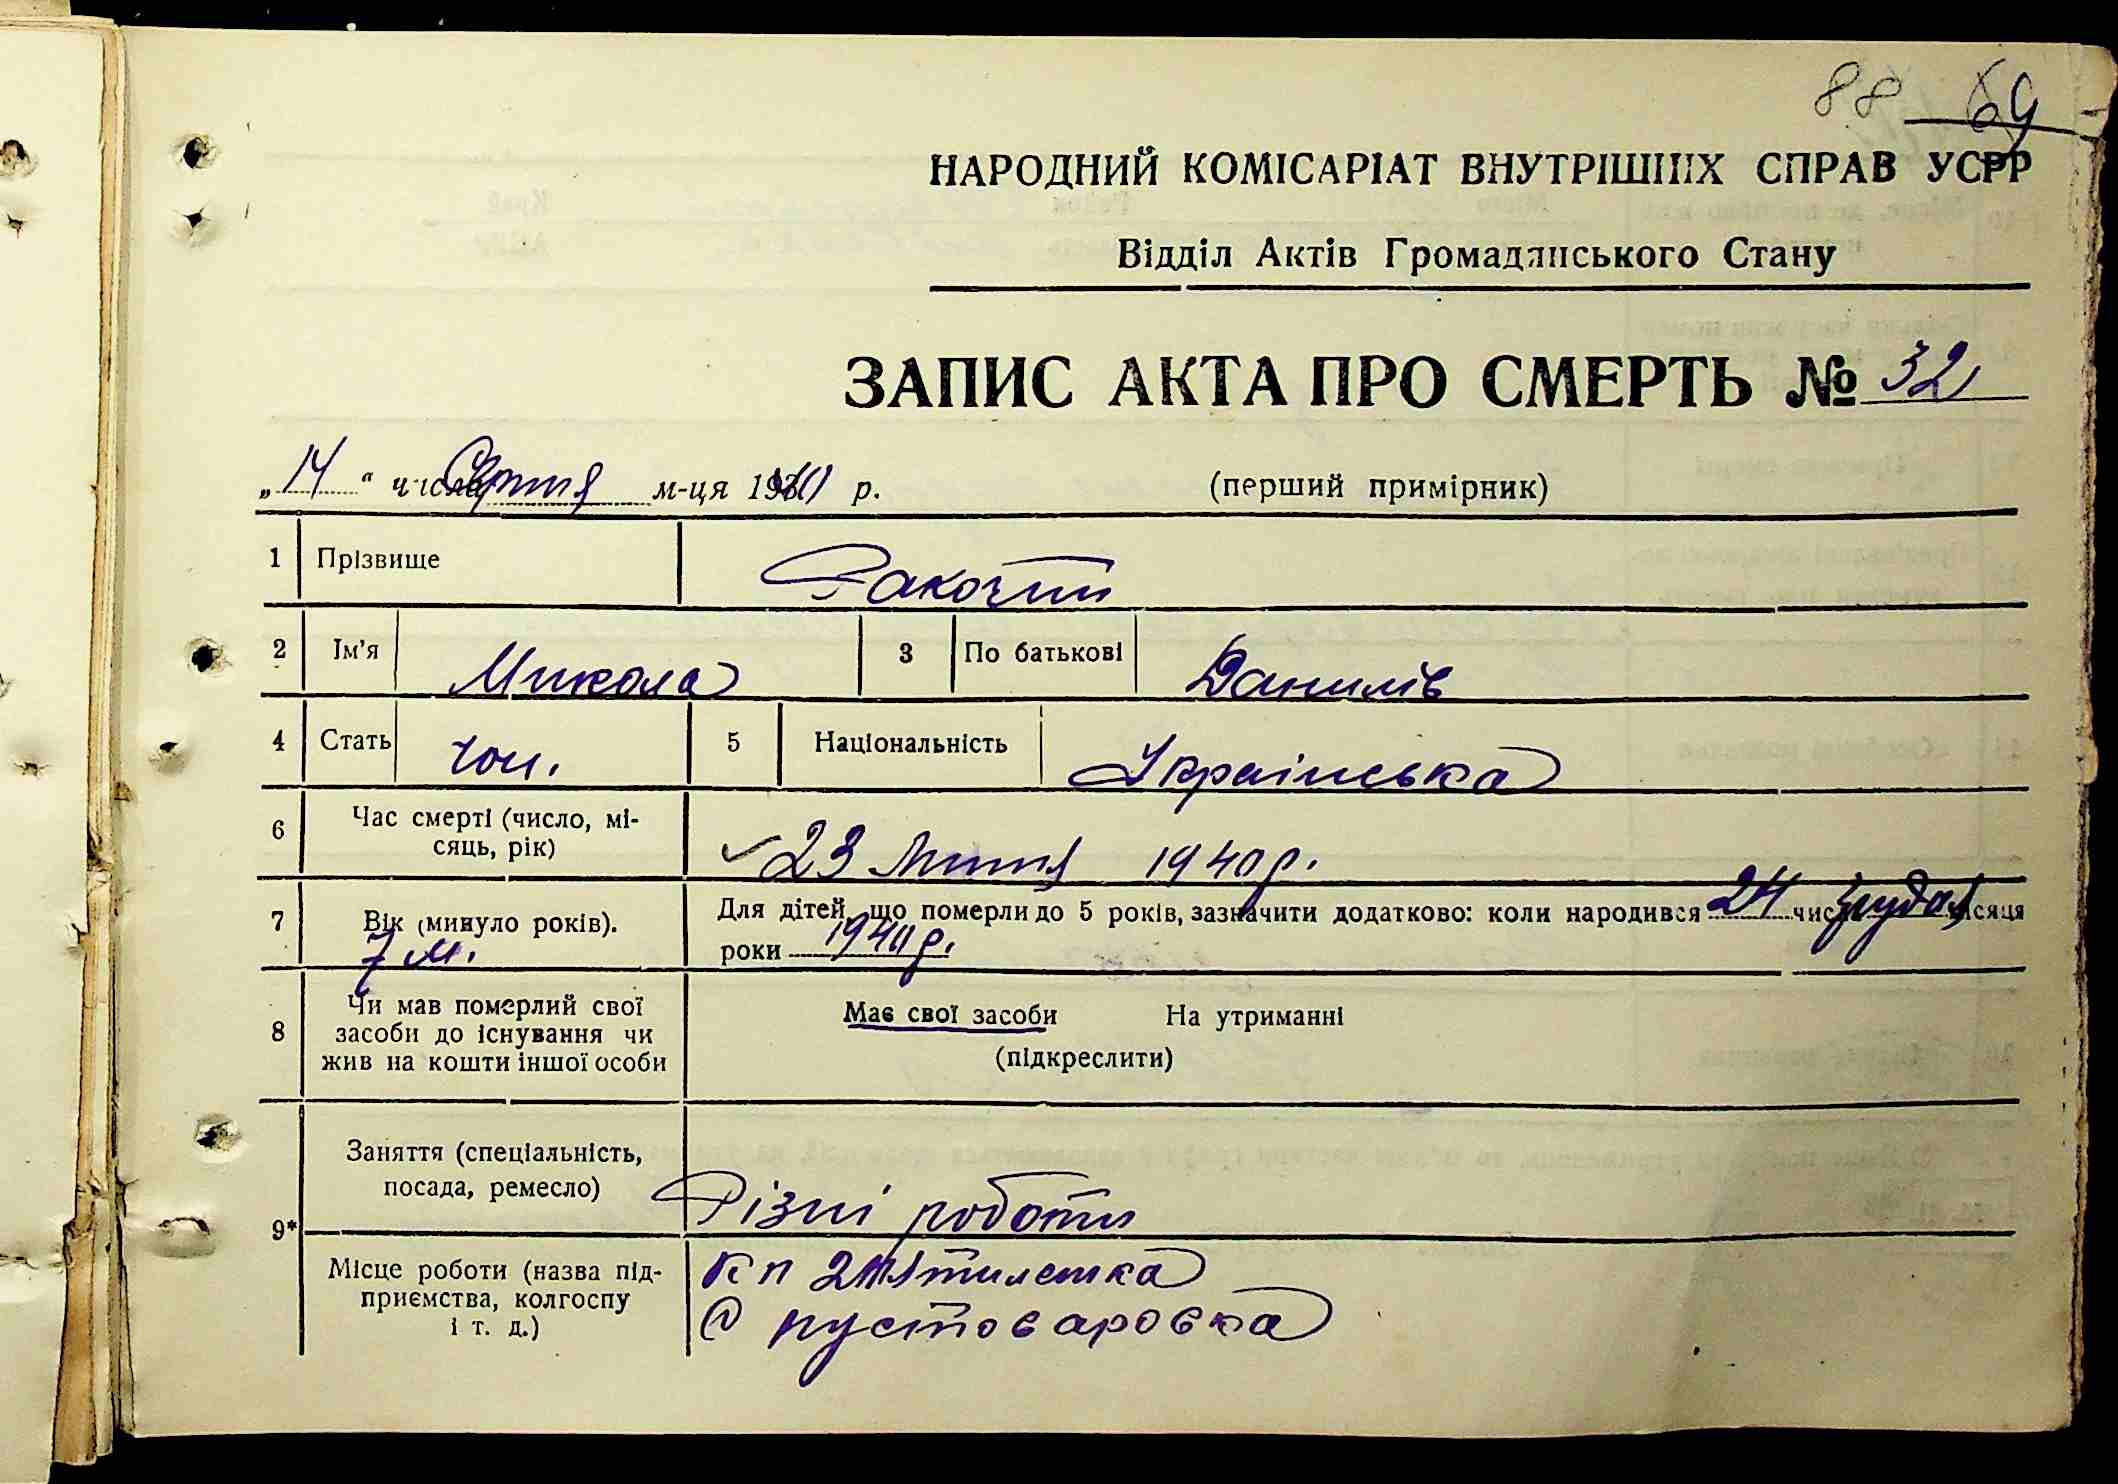 88 69
НАРОДНИЙ КОМІСАРІАТ ВНУТРІШНІХ СПРАВ УСРР
Відділ Актів Громадянського Стану
ЗАПИС АКТА ПРО СМЕРТЬ № 32
„14“ числа Серпня м-ця 1940 р. (перший примірник)
1 Прізвище Ракочий
2 Ім'я Микола 3 По батькові Данилів
4 Стать чол. 5 Національність Українська
6 Час смерті (число, мі-
сяць, рік) 23 Липня 1940 р.
7 Вік (минуло років). 7 м. Для дітей, що померли до 5 років, зазначити додатково: коли народився 24 числа грудня місяця
роки 1940 р.
8 Чи мав померлий свої
засоби до існування чи
жив на кошти іншої особи
Має свої засоби На утриманні
(підкреслити)
9* Заняття (спеціальність,
посада, ремесло) Різні роботи
Місце роботи (назва під-
приємства, колгоспу
і т. д.)
кп 2 п'ятилетка
с пустоваровка